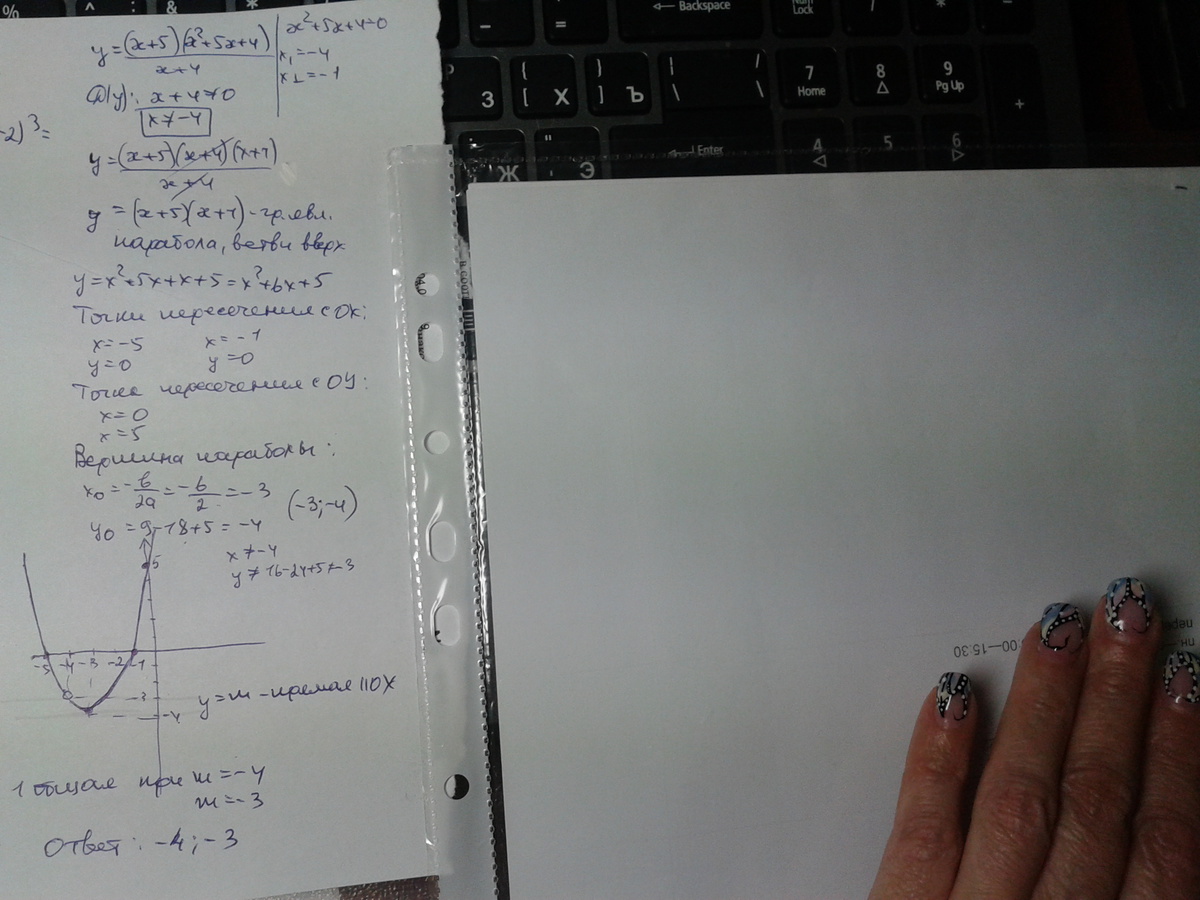 y = (x+5)(x²+5x+4) / x+4
x²+5x+4=0
x₁=-4
x₂=-1
D(y): x+4≠0
x≠-4
-2)³=
y = (x+5)(x+4)(x+1) / x+4
y = (x+5)(x+1) - гр. явл.
парабола, ветви вверх
y=x²+5x+x+5=x²+6x+5
Точки пересечения с OX:
x=-5 x=-1
y=0 y=0
Точка пересечения с OY:
x=0
x=5
Вершина параболы:
x₀=-b/2a=-6/2=-3 (-3;-4)
y₀=9-18+5=-4
x≠-4
y≠16-24+5≠-3
5
-5 -4 -3 -2 -1
-3
-4
y=m - прямая ||OX
1 общая при m=-4
m=-3
Ответ: -4; -3
% ^ : 6
← Backspace
Num Lock
/
*
-
+
=
З
{ [ Х
} ] Ъ
| \ / \
7 Home
8
9 Pg Up
+
Ж
" Э
Enter
4
5
6
.00—15.30
пере
пн